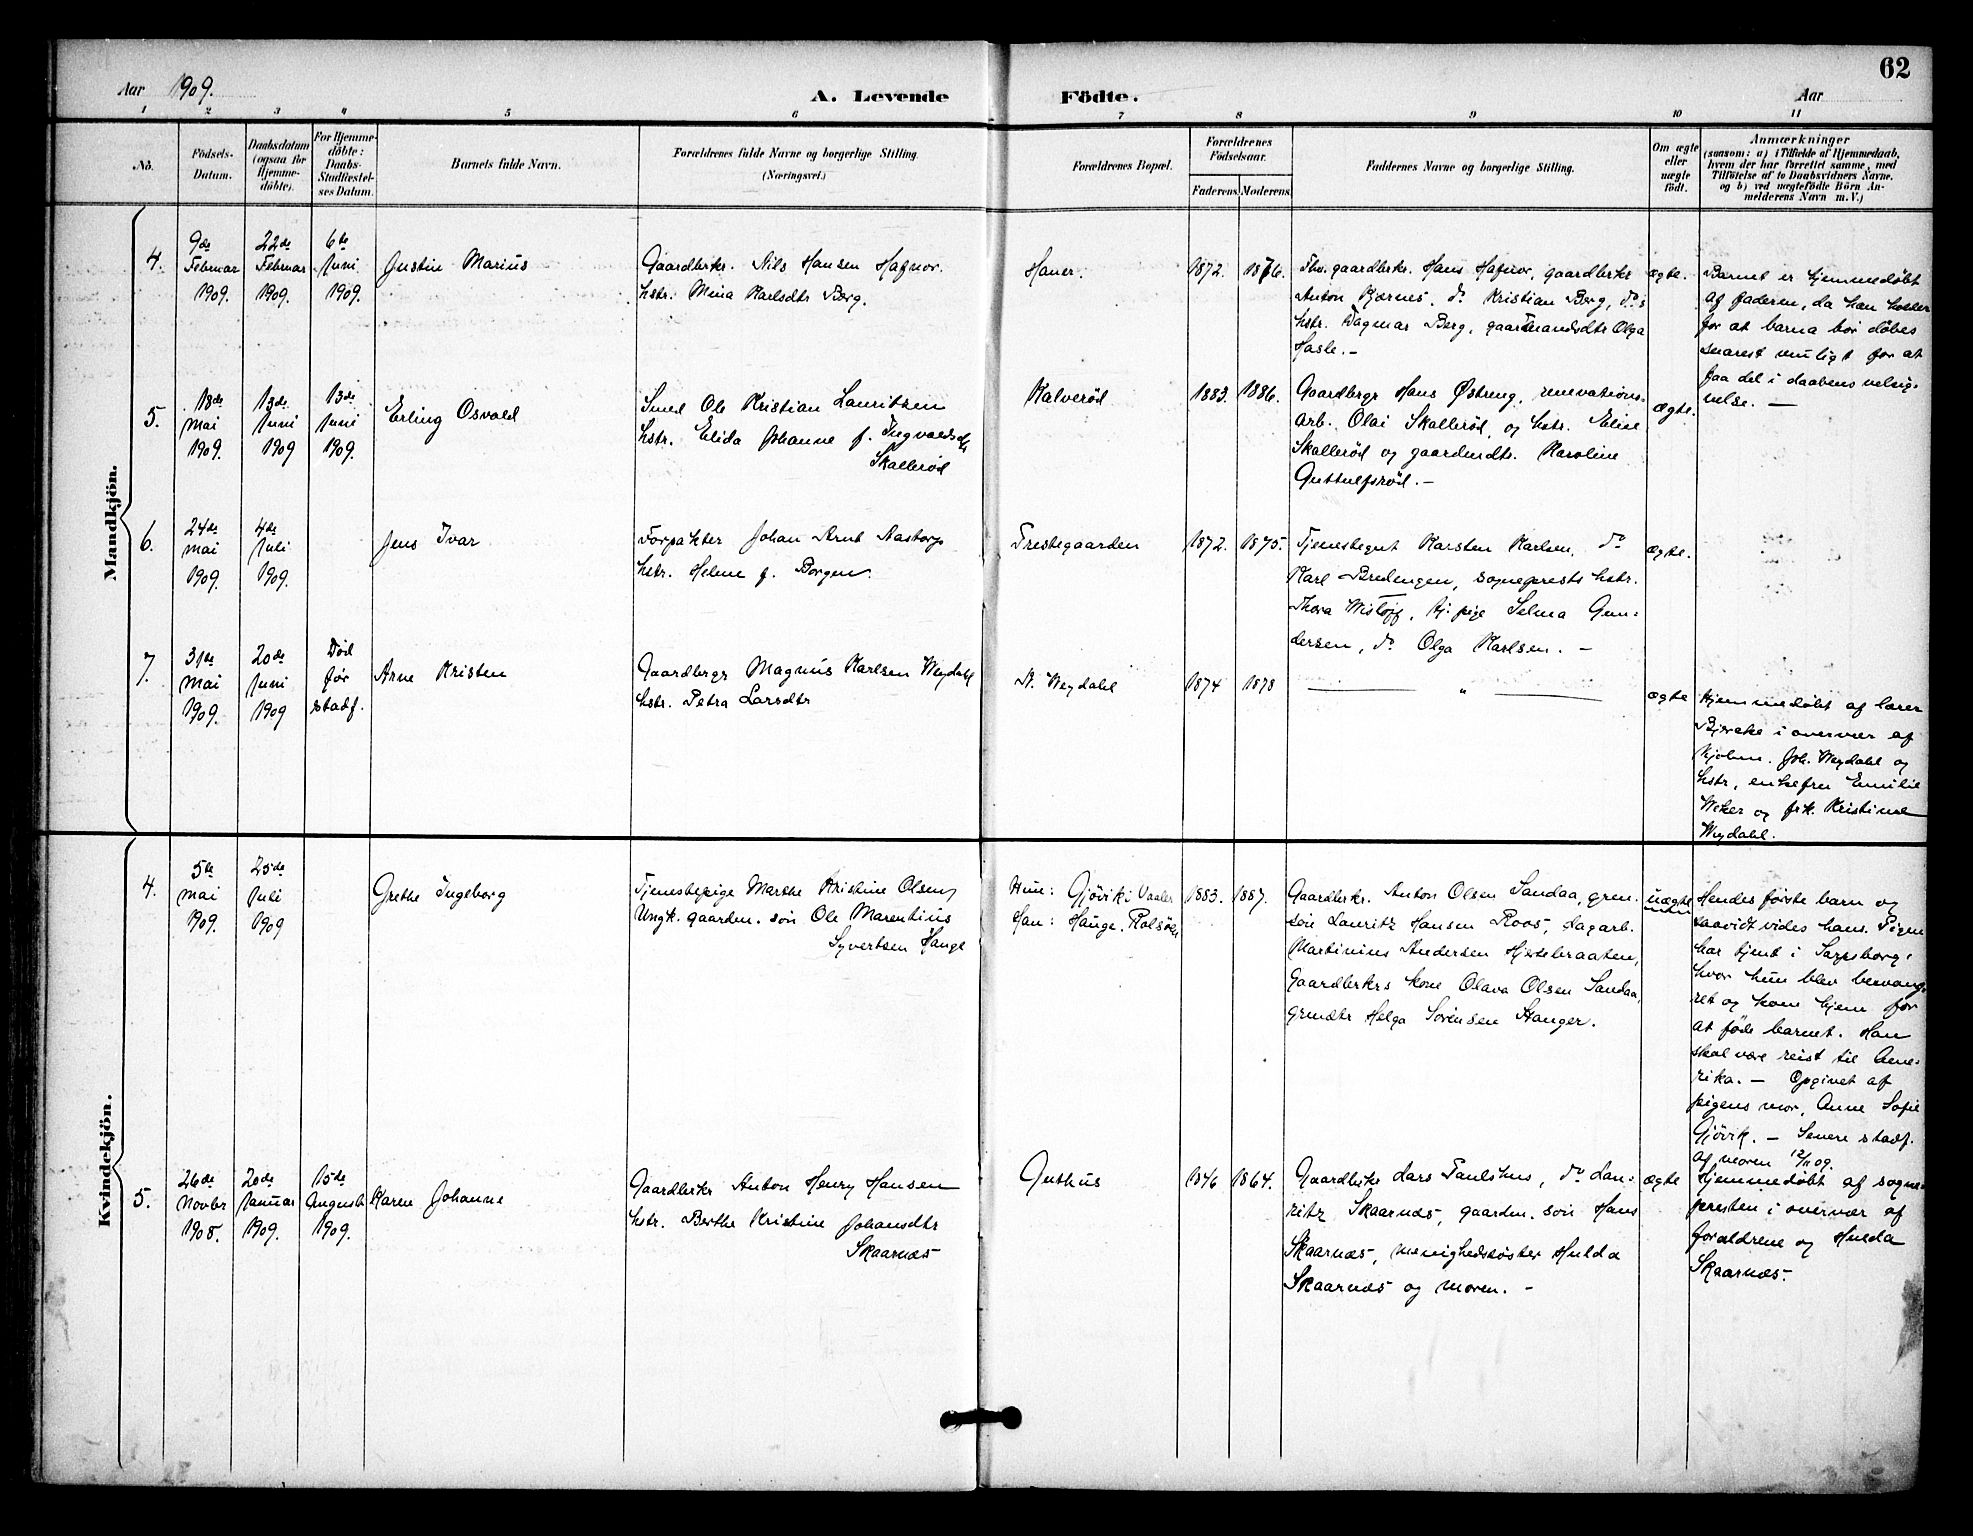 62
Aar 1909.
A. Levende Födte.
Aar
1 2 3 4 5 6 7 8 9 10 11
No.
Födsels-
Datum.
Daabsdatum
(ogsaa for
Hjemme-
döbte).
For Hjemme-
döbte:
Daabs-
Stadfæstel-
ses Datum.
Barnets fulde Navn.
Forældrenes fulde Navne og borgerlige Stilling.
(Næringsvei.)
Forældrenes Bopæl.
Forældrenes
Födselsaar.
Faderens. Moderens.
Faddernes Navne og borgerlige Stilling.
Om ægte
eller
uægte
födt.
Anmærkninger
(saasom: a) i Tilfælde af Hjemmedaab,
hvem der har forrettet samme, med
Tilföielse af to Daabsvidners Navne,
og b) ved uægtefödte Börn An-
melderens Navn m.V.)
Mandkjön.
4.
9de
Februar
1909.
22de
Februar
1909.
6te
Juni
1909.
Justin Marius
Gaardbrkr. Nils Hansen Hafnor.
hstr. Mina Karlsdtr Berg.
Haner.
1872. 1876.
Fhv. gaardbrkr. Hans Hafnor, gaardbrkr
Anton Kjærnes, do Kristian Berg, do's
hstr. Dagmar Berg, gaardmandsdtr Olga
Hasle. -
ægte.
Barnet er hjemmedøbt
af faderen, da han holder
for at barna bør døbes
snarest muligt for at
faa del i daabens velsig-
nelse. -
5.
18de
Mai
1909.
13de
Juni
1909
13de
Juni
1909.
Erling Osvald
Smed Ole Kristian Lauritzen
hstr. Elida Johanne f. Ingvaldsdtr
Skallerød
Kalverød
1883. 1886.
Gaardbrgr Hans Østreng,
arb. Olai Skallerød, og hstr. Eline
Skallerød og gaardmdtr. Karoline
Guttulfsrød. -
ægte.
6.
24de
mai
1909.
4de
Juli
1909.
Jens Ivar
Forpakter Johan Arnt Aastorp
hstr. Helene f. Borgen.
Prestegaarden
1872. 1875.
Tjenestegut Karsten Karlsen, do
Karl Bredengen, sogneprests hstr.
Thora Wisløff, tj. pige Selma Gun-
dersen, do Olga Karlsen. -
ægte.
7.
31de
Mai
1909.
20de
Juni
1909
Død
før
stadf.
Arne Kristen
Gaardbrgr Magnus Karlsen Weydahl
hstr. Petra Larsdtr
N. Weydahl
1874 1878
— " —
ægte
Hjemmedøbt af lærer
Bjercke i overvær af
Kjøbm. Joh. Weydahl og
hstr, enkefru Emilie
Weker og frk. Kristine
Weydahl.
Kvindekjön.
4.
5te
mai
1909.
25de
Juli
1909
Grethe Ingeborg
Tjenestepige Marthe Kristine Olsen,
Ungk. gaardm. søn Ole Marentius
Syvertsen Hauge
Hun: Gjøvik i Vaaler
Han: Hauge, Rolsøen
1883. 1887.
Gaardbrkr. Anton Olsen Sandaa, grm.
søn Lauritz Hansen Roos, dagarb.
Martinius Andersen Hjedebraaten,
Gaardbrkrs kone Olava Olsen Sandaa,
grmdtr Helga Sørensen Stanger.
uægte
Hendes første barn og
saavidt vides hans. Pigen
har tjent i Sarpsborg,
hvor hun blev besvang-
ret og kom hjem for
at føde barnet. Han
skal være reist til Ame-
rika. - Opgivet af
pigens mor, Anne Sofie
Gjøvik. - Senere stadf.
af moren 12/11 09.
5.
26de
Novbr
1908.
20de
Januar
1909.
15de
August
1909.
Karen Johanne
Gaardbrkr Anton Henry Hansen
hstr. Berthe Kristine Johansdtr
Skaarnæs
Guthus
1846 1864.
Gaardbrkr Lars Paulshus, do Lau-
ritz Skaarnæs, gaardm. søn Hans
Skaarnæs, menighedssøster Hulda
Skaarnæs og moren. -
ægte
Hjemmedøbt af sogne-
presten i overvær af
forældrene og Hulda
Skaarnæs.